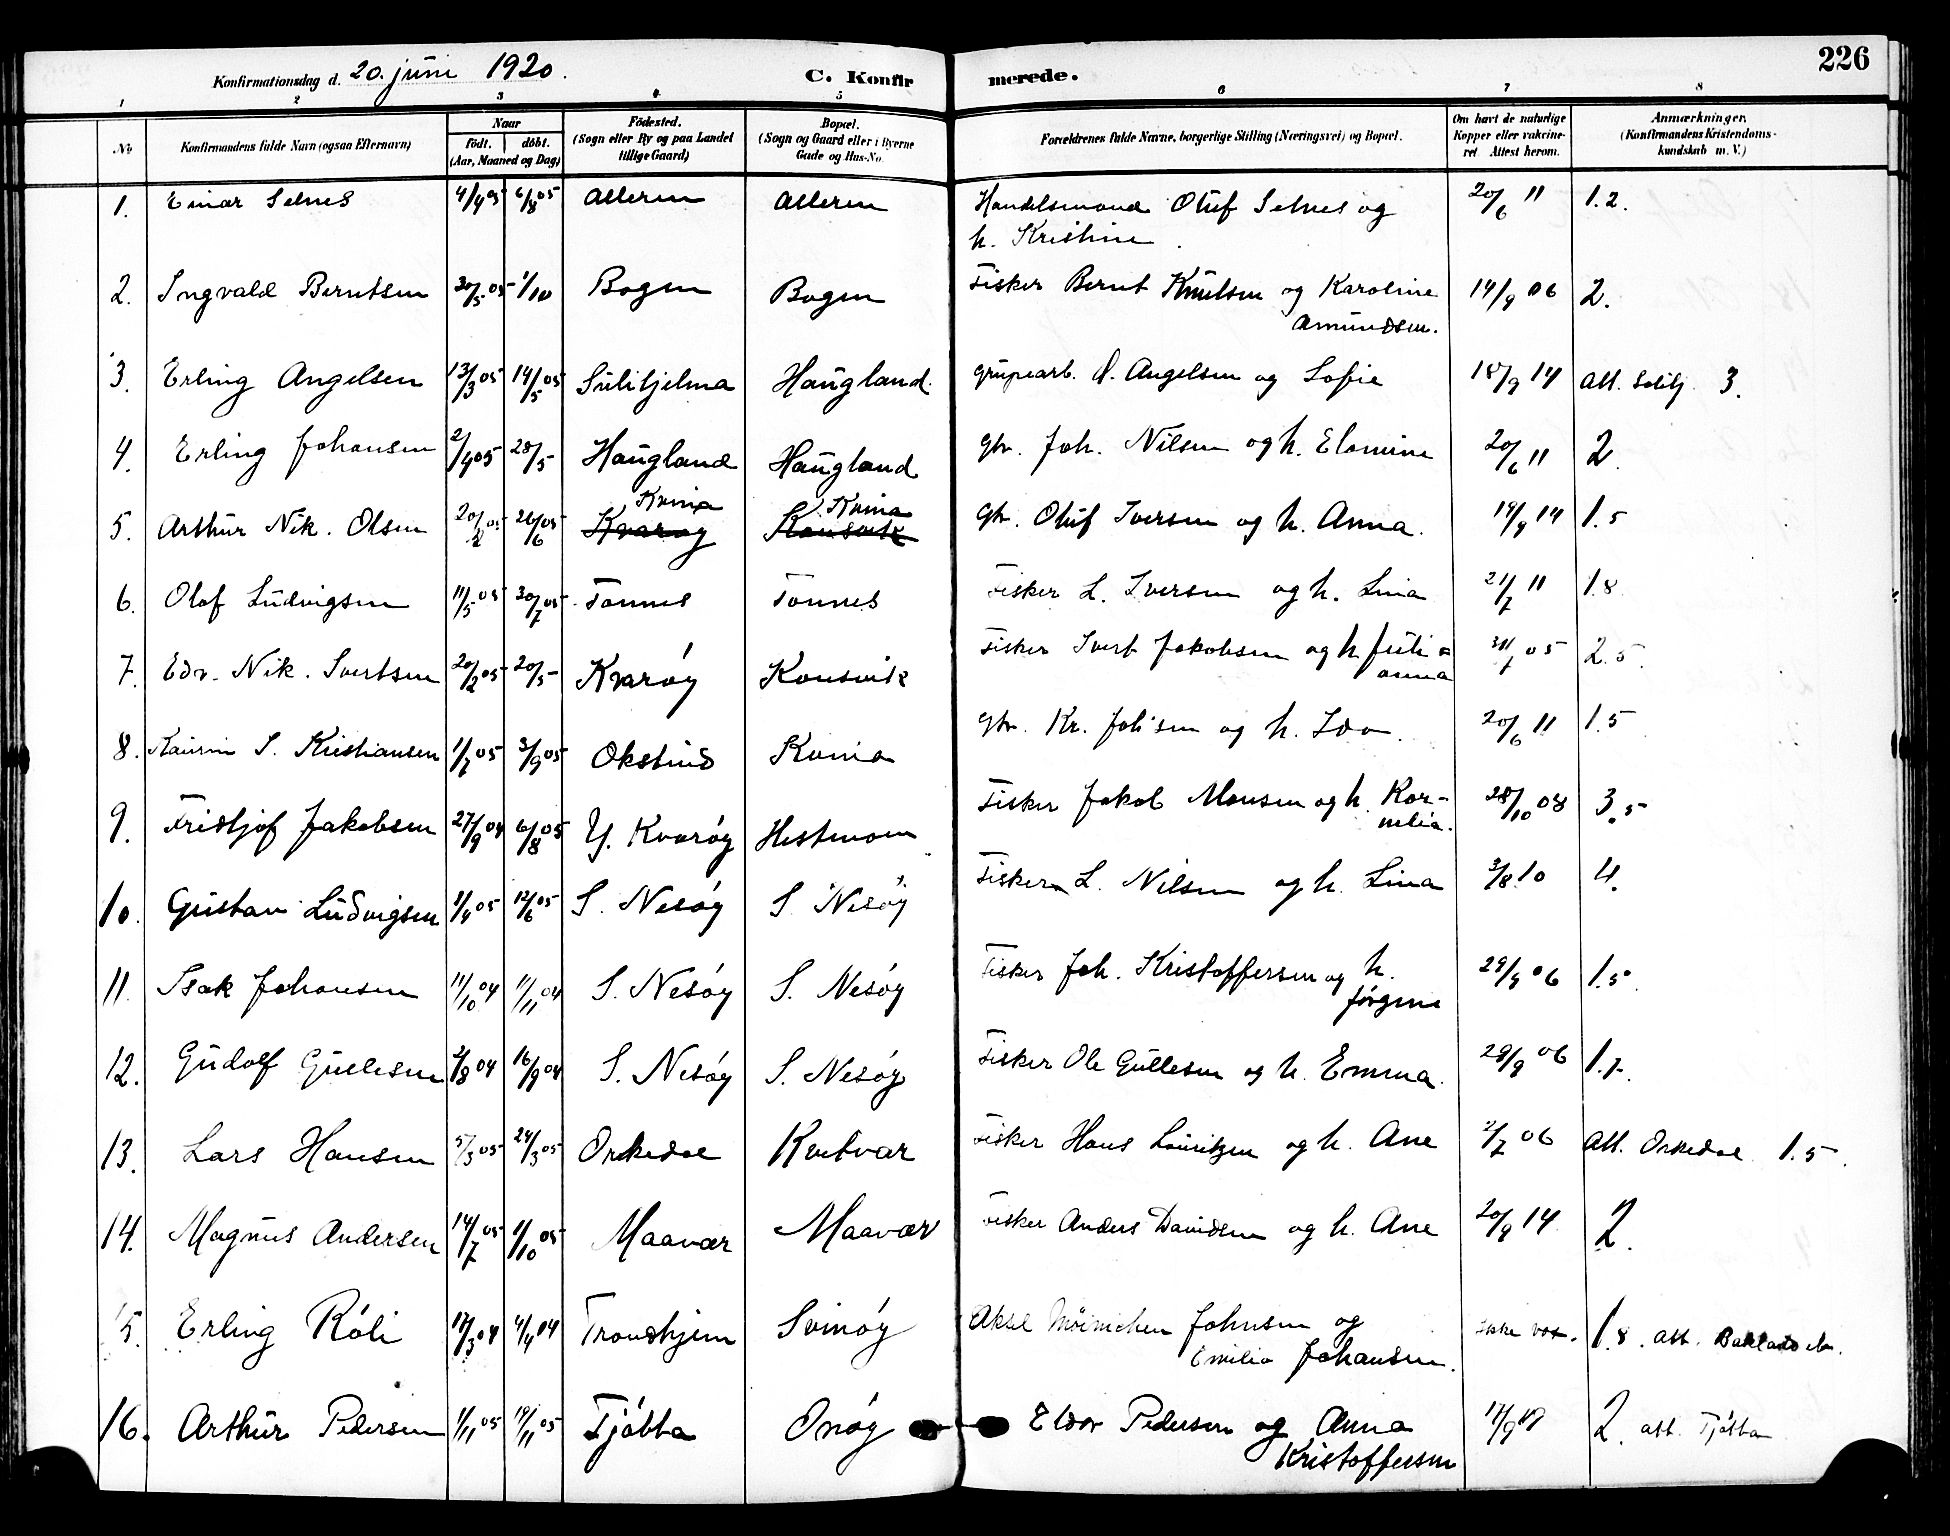 226
Konfirmationsdag d. 20. juni 1920. C. Konfirmerede.
1 2 3 4 5 6 7 8
No Konfirmandens fulde Navn (ogsaa Efternavn) Naar født. døbt. (Aar, Maaned og Dag) Fødested. (Sogn eller By og paa Landet tillige Gaard) Bopæl. (Sogn og Gaard eller i Byerne Gade og Hus-No. Forældrenes fulde Navne, borgerlige Stilling (Næringsvei) og Bopæl. Om havt de naturlige Kopper eller vakcineret Attest herom. Anmærkninger. (Konfirmandens Kristendomskundskab m. V.)
1. Einar Selnes 4/4 05 6/8 05 Alleren Alleren Handelsmand Oluf Selnes og 20/6 11 1.2.
h. Kristine.
2. Ingvald Berntsen 30/5 05 1/10 Bogen Bogen Fisker Bernt Knutsen og Karoline 14/9 06 2.
Amundsen.
3. Erling Angelsen 13/3 05 14/5 05 Sulitjelma Haugland. Grubearb. A. Angelsen og Sofie 18/9 14 Att. Sulitj. 3.
4. Erling Johansen 2/4 05 28/5 Haugland Haugland Gbr. Joh. Nilsen og h. Elomine 20/6 11 2.
Kvina Kvina
5. Arthur Nik. Olsen 20/2 05 26/6 05 Kvarøy Konsvik Gbr. Oluf Iversen og h. Anna. 19/9 14 1.5
6. Olaf Ludvigsen 11/5 05 30/7 05 Tonnes Tonnes Fisker L. Iversen og h. Lina 21/7 11 1.8
7. Edv. Nik. Svertsen 20/2 05 20/5 Kvarøy Konsvik Fisker Sivert Jakobsen og h Juli= 31/7 05 2.5.
anna
8. S. Kristiansen 1/7 05 3/9 05 Okstind Kvina Gbr. Kr. Joh'sen og h. Ida. 20/6 11 1.5
9. Fridtjof Jakobsen 27/9 04 6/8 05 Y. Kvarøy Hestmon Fisker Jakob Monsen og h. Kor- 28/10 08 3.5
nelia.
10. Gustav Ludvigsen 1/4 05 12/6 05 S. Nesøy S. Nesøy Fisker L. Nilsen og h. Lina 3/8 10 4.
11. Isak Johansen 11/10 04 11/11 04 S. Nesøy S. Nesøy Fisker Joh. Kristoffersen og h. 29/9 06 1.5.
Jørgine
12. Gudolf Gullesen 2/8 04 16/9 04 S. Nesøy S. Nesøy Fisker Ole Gullesen og h. Emma. 29/9 06 1.7.
13. Lars Hansen 5/3 05 24/3 05 Orkedal Kvitvær Fisker Hans Lauritzen og h. Ane 2/7 06 Att. Orkedal 1.5.
14. Magnus Andersen 14/7 05 1/10 05 Maavær Maavær Fisker Anders Davidsen og h. Ane 20/9 14 2.
15. Erling Röli 17/3 04 4/4 04 Trondhjem Svinøy Aksel Møinichen Johnsen og Ikke vac. 1.8. att. Baklandet.
Emilie Johansen.
16. Arthur Pedersen 1/11 05 19/11 05 Tjøtta Onøy Eldor Pedersen og Anna 17/9 19 2. att. Tjøtta
Kristoffersen